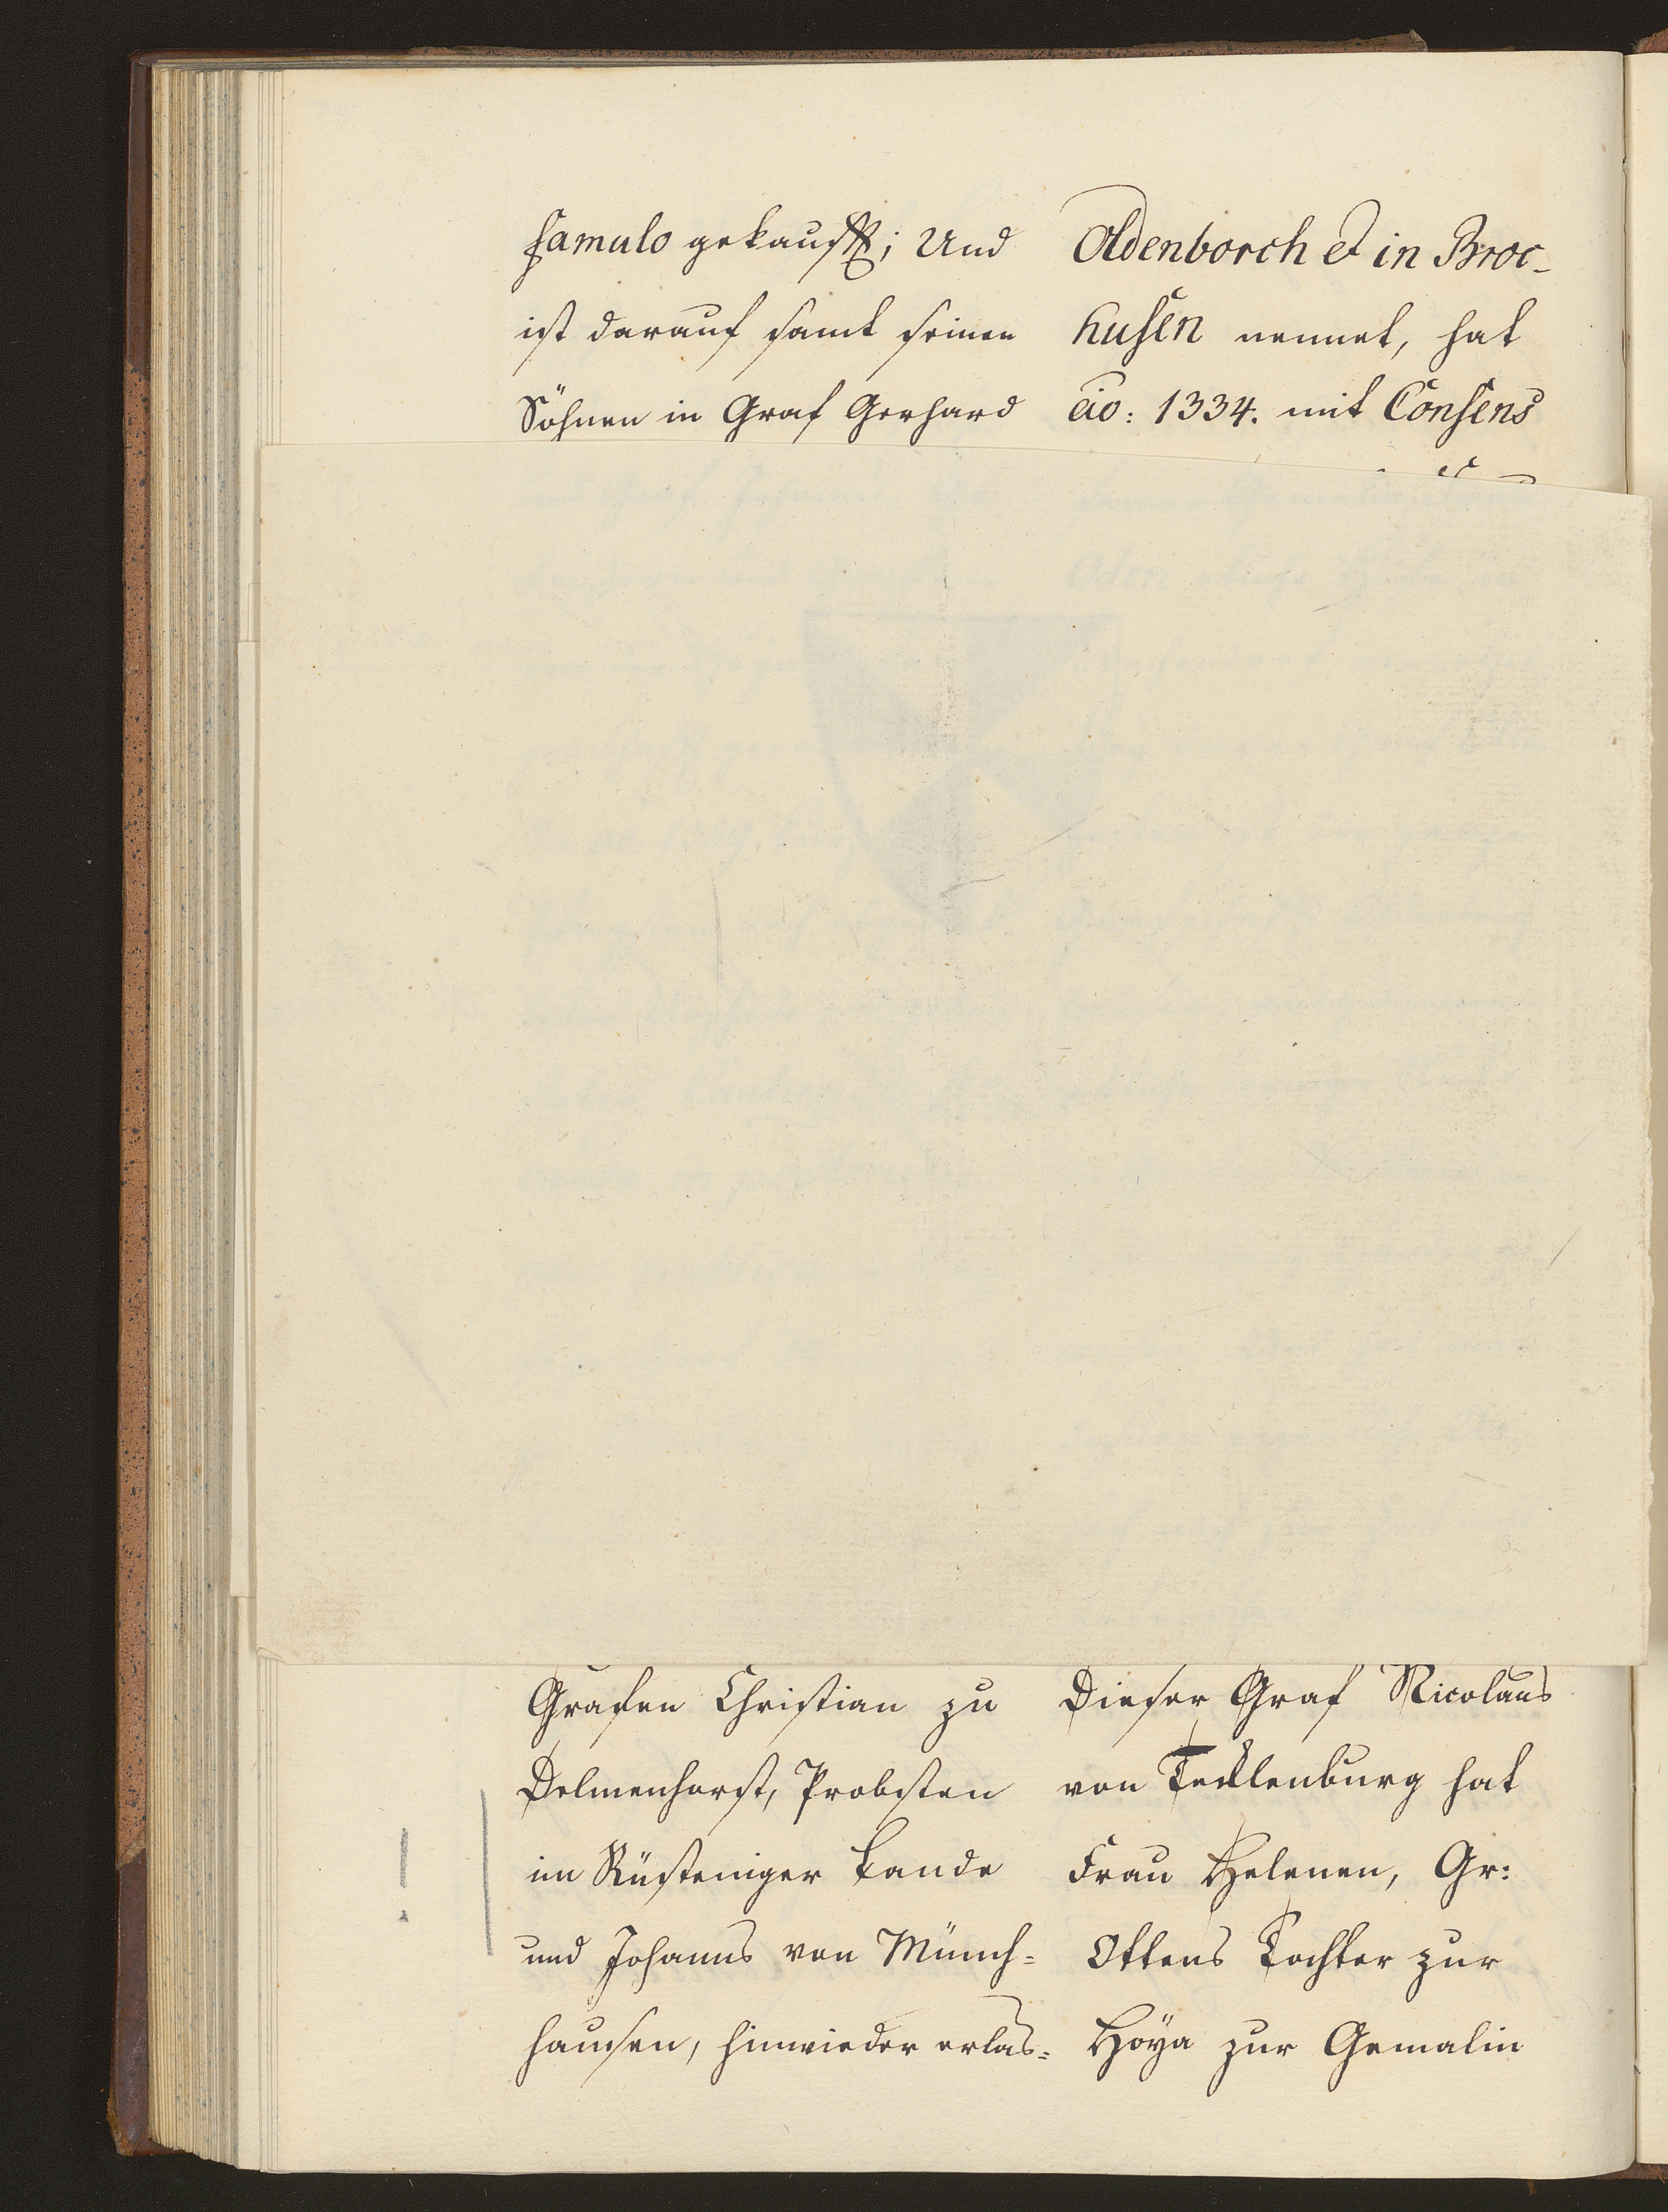 famulo gekaufft; Und
ist darauf samt seinen
Söhnen in Graf Gerhard
Grafen Christian zu
Delmenhorst, Probsten
im Rüsteniger Lande
und Johanns von Münch=
hausen, hinwieder erlas=
Oldenborch et in Broc-
husen nennet, hat
ao: 1334. mit Consens
Dieser Graf Nicolaus
von Tecklenburg hat
Frau Helenen, Gr:
Ottens Tochter zur
Hoya zur Gemalin